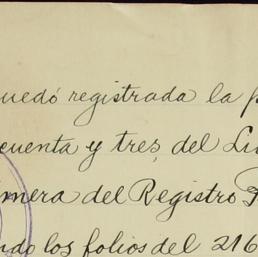 uedó registrada la p
cuenta y tres, del Li
mera del Registro P
ndo los folios del 216